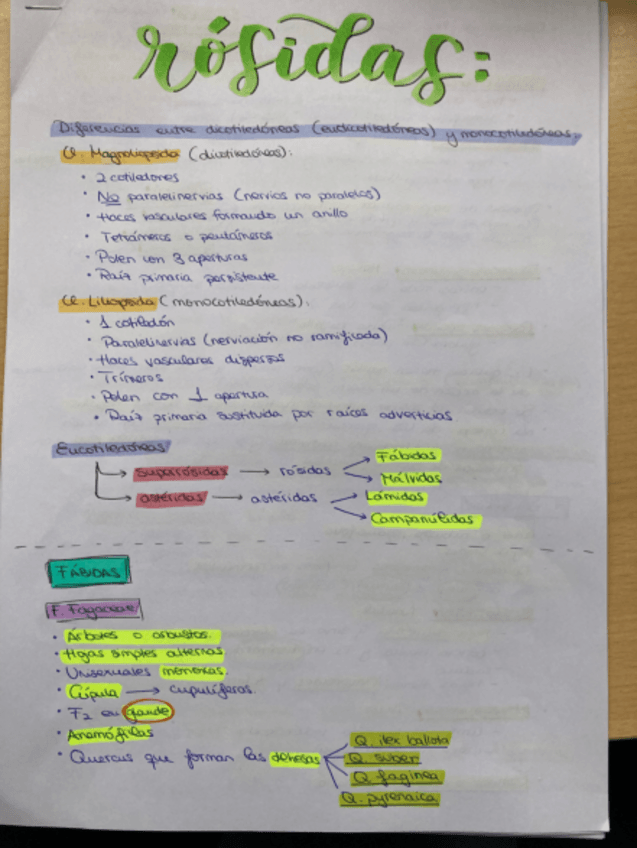 rósidas:
Diferencias entre dicotiledóneas (eudicotiledóneas) y monocotiledóneas.
Cl. Magnoliopsida (dicotiledóneas):
• 2 cotiledones
• No paralelinervias (nervios no paralelos)
• Haces vasculares formando un anillo
• Tetrámeros o pentámeros
• Polen con 3 aperturas
• Raíz primaria persistente
Cl. Liliopsida (monocotiledóneas):
• 1 cotiledón
• Paralelinervias (nerviación no ramificada)
• Haces vasculares dispersos
• Trímeros
• Polen con 1 apertura
• Raíz primaria sustituida por raíces adverticias
Eucotiledóneas
→ superrósidas → rósidas → Fábidas
→ Málvidas
→ astéridas → astéridas → Lámidas
→ Campanulidas
FÁBIDAS
F. Fagaceae
• Árboles o arbustos.
• Hojas simples alternas.
• Unisexuales monoicas.
• Cúpula → cupulíferas.
• F2 en glande
• Anemófilas
• Quercus que forman las dehesas
Q. ilex ballota
Q. suber
Q. faginea
Q. pyrenaica